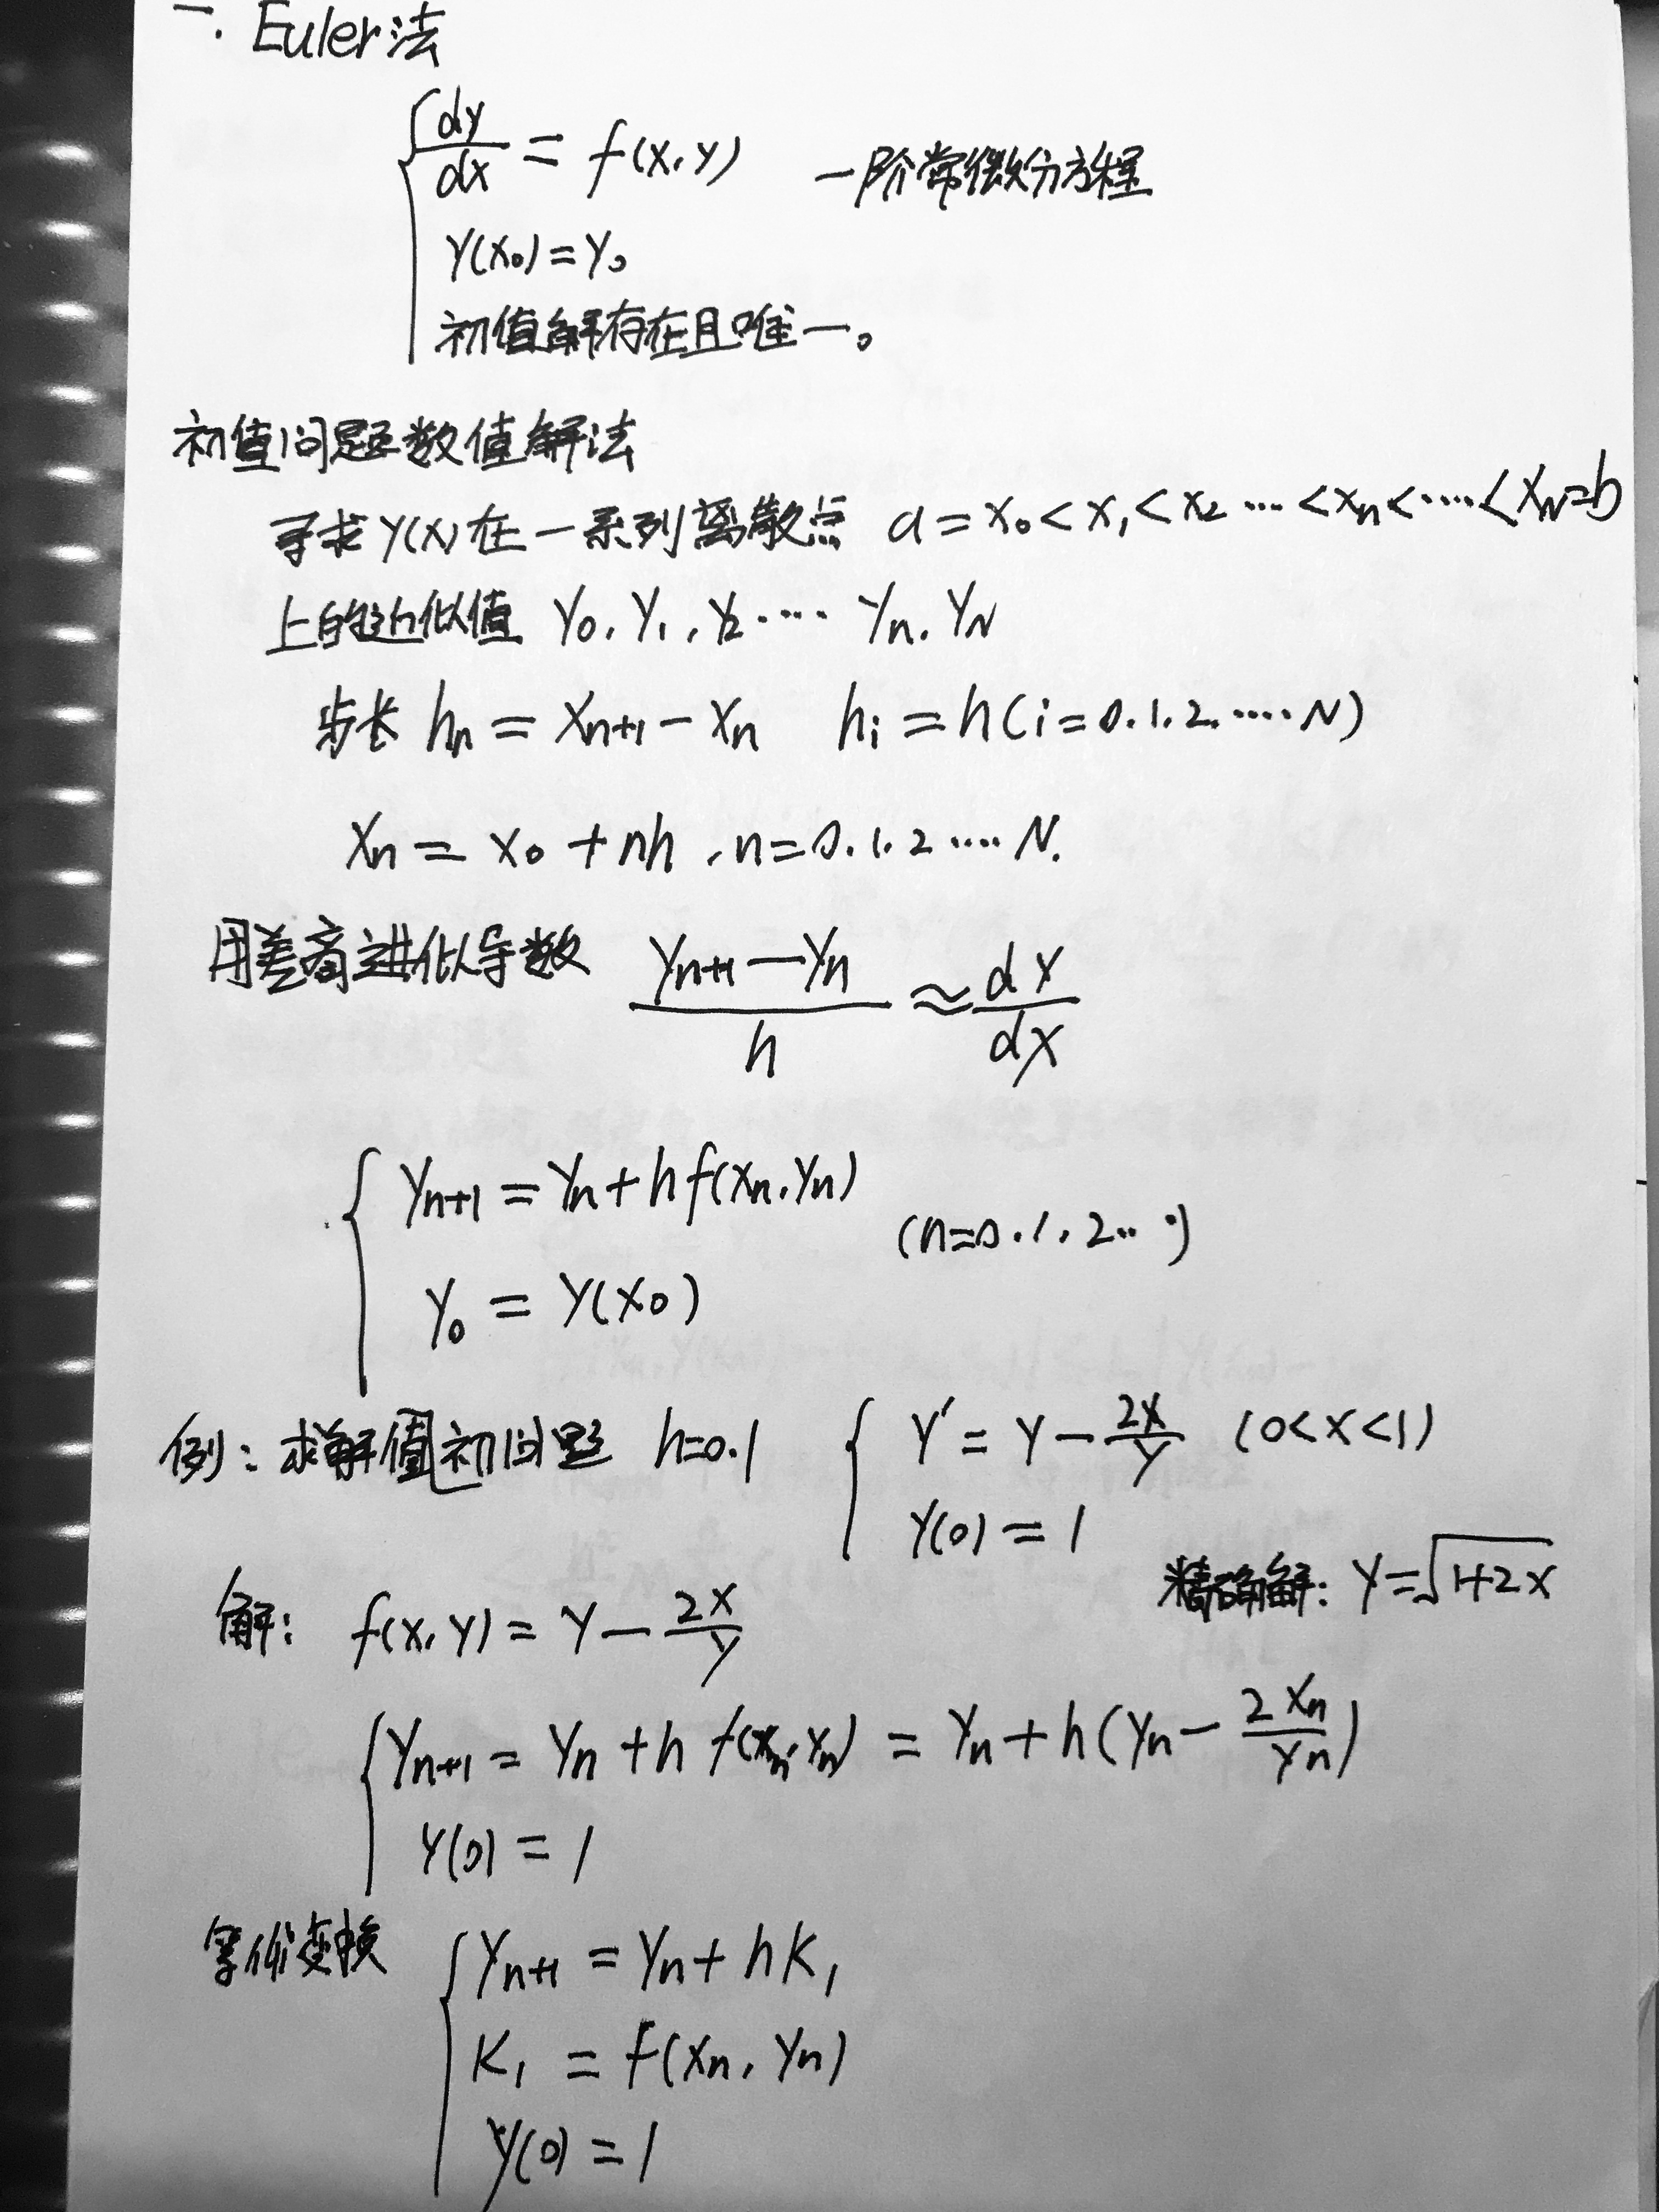 一. Euler法
dy/dx = f(x,y) 一阶常微分方程
y(x₀)=y₀
初值解存在且唯一。
初值问题数值解法
寻求y(x)在一系列离散点 a=x₀<x₁<x₂…<xₙ<……<x_N=b
上的近似值 y₀,y₁,y₂…… yₙ,y_N
步长 hₙ = xₙ₊₁-xₙ hᵢ=h(i=0.1.2.……N)
xₙ = x₀+nh ,n=0.1.2……N.
用差商进似导数 (yₙ₊₁-yₙ)/h ≈ dy/dx
yₙ₊₁=yₙ+hf(xₙ,yₙ)
(n=0.1.2…)
y₀=y(x₀)
例:求解值初问题 h=0.1 y'=y-2x/y (0<x<1)
y(0)=1
精确解: y=√(1+2x)
解: f(x,y)=y-2x/y
yₙ₊₁=yₙ+h f(xₙ,yₙ)=yₙ+h(yₙ-2xₙ/yₙ)
y(0)=1
等价变换 yₙ₊₁=yₙ+hK₁
K₁=f(xₙ,yₙ)
y(0)=1